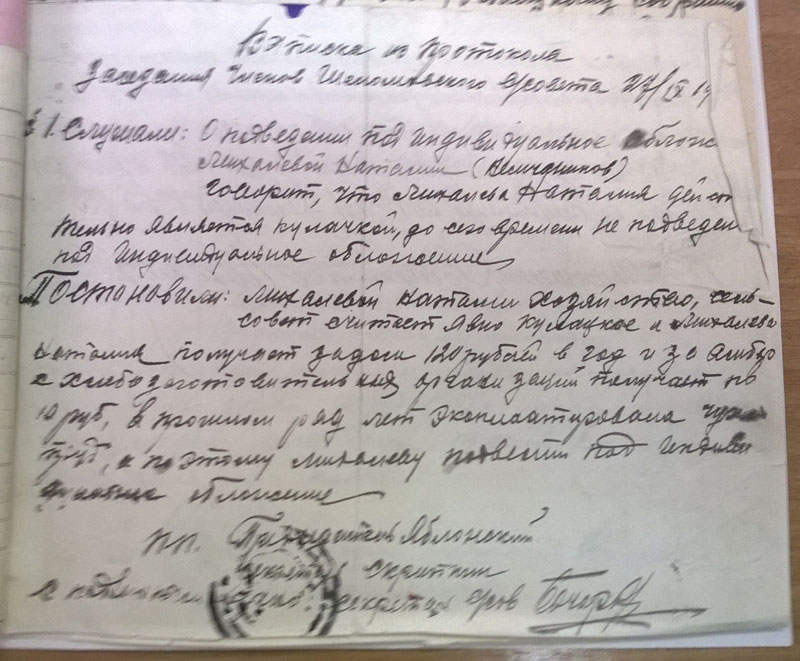 Выписка из протокола
Заседания Членов с/совета 27/IX 19
§ 1. Слушали: О подведении под индивидуальное облож
Михалевой Наталии
говорит, что Михалева Наталия дейст
тельно является кулачкой, до сего времени не подведен
под индивидуальное обложение
Постановили: Михалевой Наталии хозяйство, сель-
совет считает явно кулацкое и Михалева
Наталия получает за дом 120 рублей в год и за амбар
с хлебозаготовительных организаций получает по
10 руб, в прошлом ряд лет эксплоатировала чуж
труд, а поэтому Михалеву подвести под индиви
дуальное обложение
пп. Председатель Яблонский
секретарь
секретарь